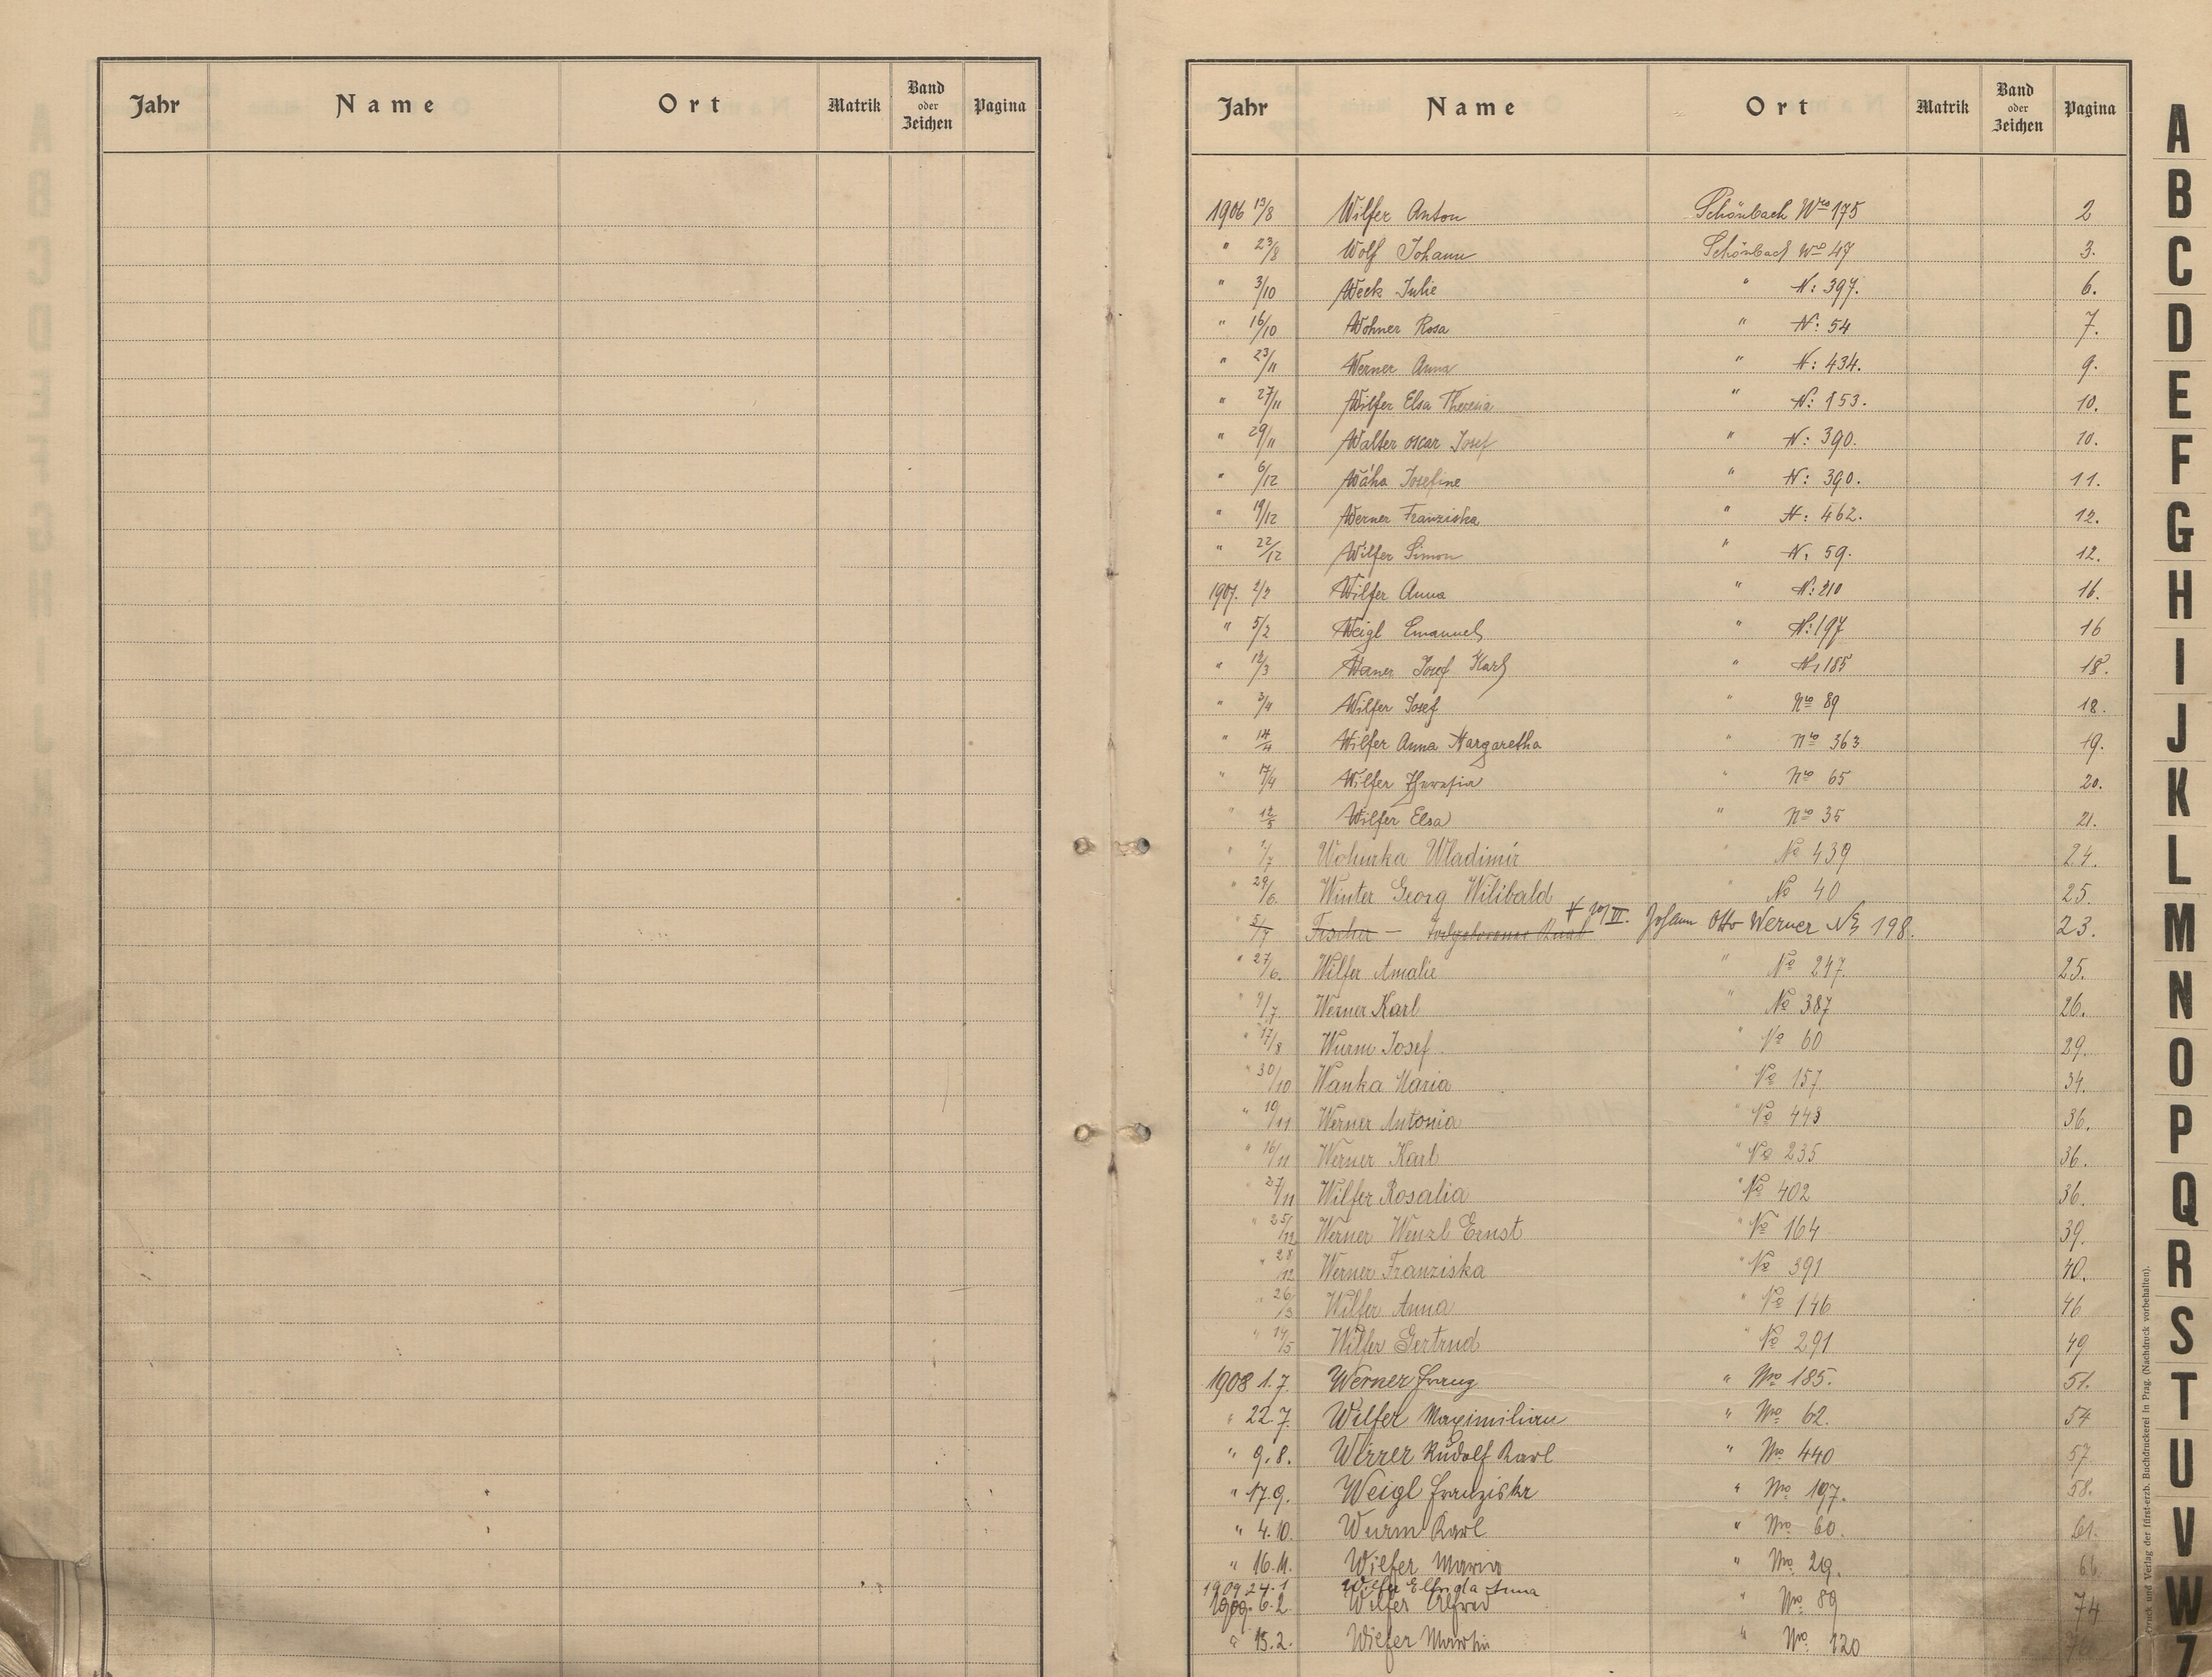 Jahr Name Ort Matrik Band oder Zeichen Pagina
Jahr Name Ort Matrik Band oder Zeichen Pagina
1906 13/8 Wilfer Anton Schönbach Nro 175 2
" 23/8 Wolf Johann Schönbach No 47 3.
" 3/10 Weck Julie " N: 397. 6.
" 16/10 Wohner Rosa " N: 54 7.
" 23/11 Werner Anna " N: 434. 9.
" 27/11 Wilfer Elsa Theresia " N: 153. 10.
" 29/11 Walter Oscar Josef " N: 390. 10.
" 6/12 Wáha Josefine " N: 390. 11.
" 19/12 Werner Franziska " N: 462. 12.
" 22/12 Wilfer Simon " N. 59. 12.
1907. 2/2 Wilfer Anna " N: 210 16.
" 5/2 Weigl Emanuel " N: 197 16
" 12/3 Josef Karl " N. 185 18.
" 3/4 Wilfer Josef " Nro 89 18.
" 14/4 Wilfer Anna Margaretha " Nro 363 19.
" 17/4 Wilfer Theresia " Nro 65 20.
" 12/5 Wilfer Elsa " Nro 35 21.
" Wohurka Wladimir " No 439 24.
" 29/6. Winter Georg Wilibald " No 40 25.
" 5/7 Fischer — todgeborener Knab Johann Otto Werner No 198. 23.
" 27/6. Wilfer Amalie " No 247. 25.
" 9/7 Werner Karl " No 387 26.
" 17/8 Wurm Josef. " No 60 29.
" 30/10 Wanka Maria " No 157 34.
" 10/11 Werner Antonia " No 443 36.
" 16/11 Werner Karl " No 235 36.
" 27/11 Wilfer Rosalia " No 402 36.
" 25/12 Werner Wenzl Ernst " No 164 39.
" 28/12 Werner Franziska " No 391 40.
" 26/3 Wilfer Anna " No 146 46
" 14/5 Wilfer Gertrud " No 291 49
1908 1.7. Werner Franz " Nro 185. 51.
" 22.7. Wilfer Maximilian " Nro 62. 54
" 9.8. Wirrer Rudolf Karl " Nro 440 57
" 17.9. Weigl Franziska " Nro 197. 58.
" 4.10. Wurm Karl " Nro 60. 61.
" 16.11. Wilfer Maria " Nro 29.
1909 24.1 Wilfer Elfrida Anna
1909. 6.2. Wilfer Alfred " Nro 89 74
" 15.2. Wilfer Martin " Nro 120
A
B
C
D
E
F
G
H
I
J
K
L
M
N
O
P
Q
R
S
T
U
V
W
Z
Druck und Verlag der fürst-erzb. Buchdruckerei in Prag. (Nachdruck vorbehalten).